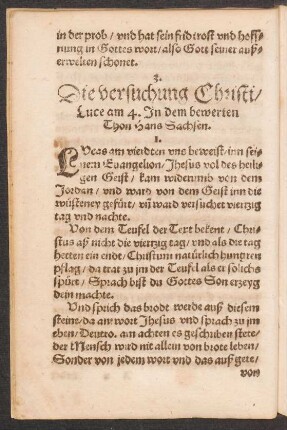 in der prob / vnd hat sein frid trost vnd hoff⸗
nung in Gottes wort / also Gott seiner auß⸗
erwelten schonet.
3.
Die versuchung Christi /
Luce am 4. In dem bewerten
Thon Hans Sachsen.
1.
LVcas am vierdten vns beweist / inn sei⸗
nem Euangelion / Jhesus vol des heili⸗
gen Geist / kam widerumb von dem
Jordan / vnd ward von dem Geist inn die
wüsteney gefürt / vñ ward versuchet viertzig
tag vnd nachte.
Von dem Teufel der Text bekent / Chri⸗
stus aß nicht die viertzig tag / vnd als die tag
hetten ein ende / Christum natürlich hungern
pflag / da trat zu jm der Teufel als er solichs
spürt / Sprach bist du Gottes Son erzeyg
dein machte.
Vnd sprich das brodt werde auß diesem
steine / da antwort Jhesus vnd sprach zu im
ehen / Deutro. am achten es geschriben stete /
der Mensch wird nit allein von brote leben /
Sonder von jedem wort vnd das auß gete /
von